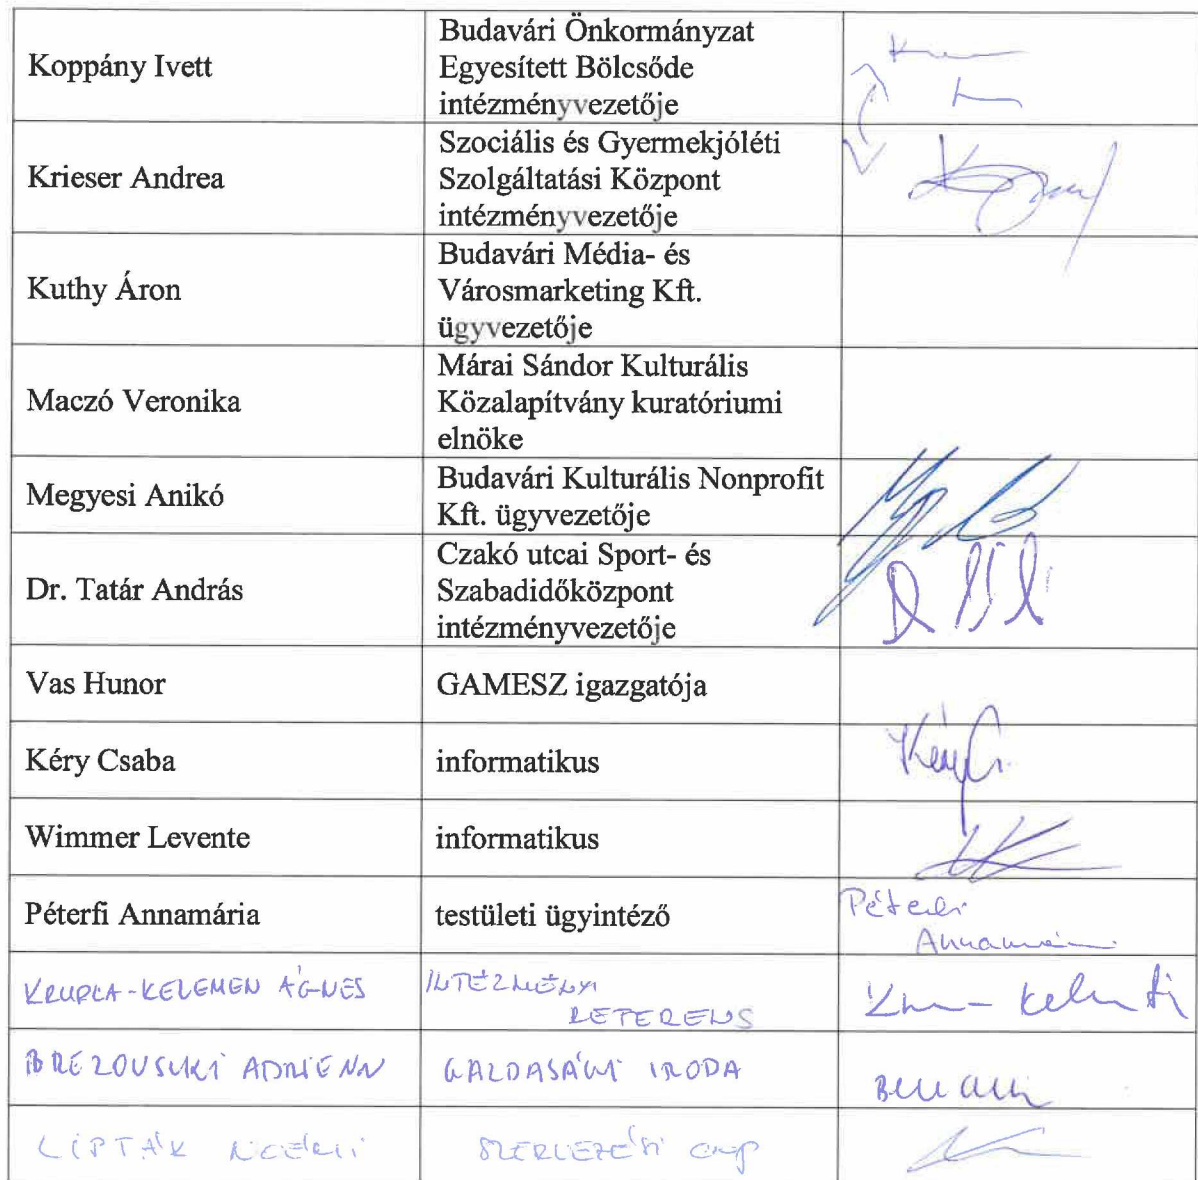 Koppány Ivett
Budavári Önkormányzat
Egyesített Bölcsőde
intézményvezetője
Krieser Andrea
Szociális és Gyermekjóléti
Szolgáltatási Központ
intézményvezetője
Kuthy Áron
Budavári Média- és
Városmarketing Kft.
ügyvezetője
Maczó Veronika
Márai Sándor Kulturális
Közalapítvány kuratóriumi
elnöke
Megyesi Anikó
Budavári Kulturális Nonprofit
Kft. ügyvezetője
Dr. Tatár András
Czakó utcai Sport- és
Szabadidőközpont
intézményvezetője
Vas Hunor
GAMESZ igazgatója
Kéry Csaba
informatikus
Wimmer Levente
informatikus
Péterfi Annamária
testületi ügyintéző
Péterfi
Annamária
KRUPLA-KELEMEN ÁGNES
INTÉZMÉNYI
REFERENS
BREZOVSZKI ADRIENN
GAZDASÁGI IRODA
LIPTÁK